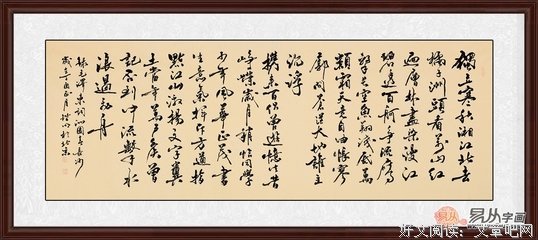 独立寒秋湘江北去
橘子洲头看万山红
遍层林尽染漫江
碧透百舸争流鹰
击长空鱼翔浅底万
类霜天竞自由怅寥
廓问苍茫大地谁主
沉浮
携来百侣曾游忆往昔
峥嵘岁月稠恰同学
少年风华正茂书
生意气挥斥方遒指
点江山激扬文字粪
土当年万户侯曾
记否到中流击水
浪遏飞舟
录毛泽东词沁园春长沙
于北京
易从字画
好文阅读：文章吧网